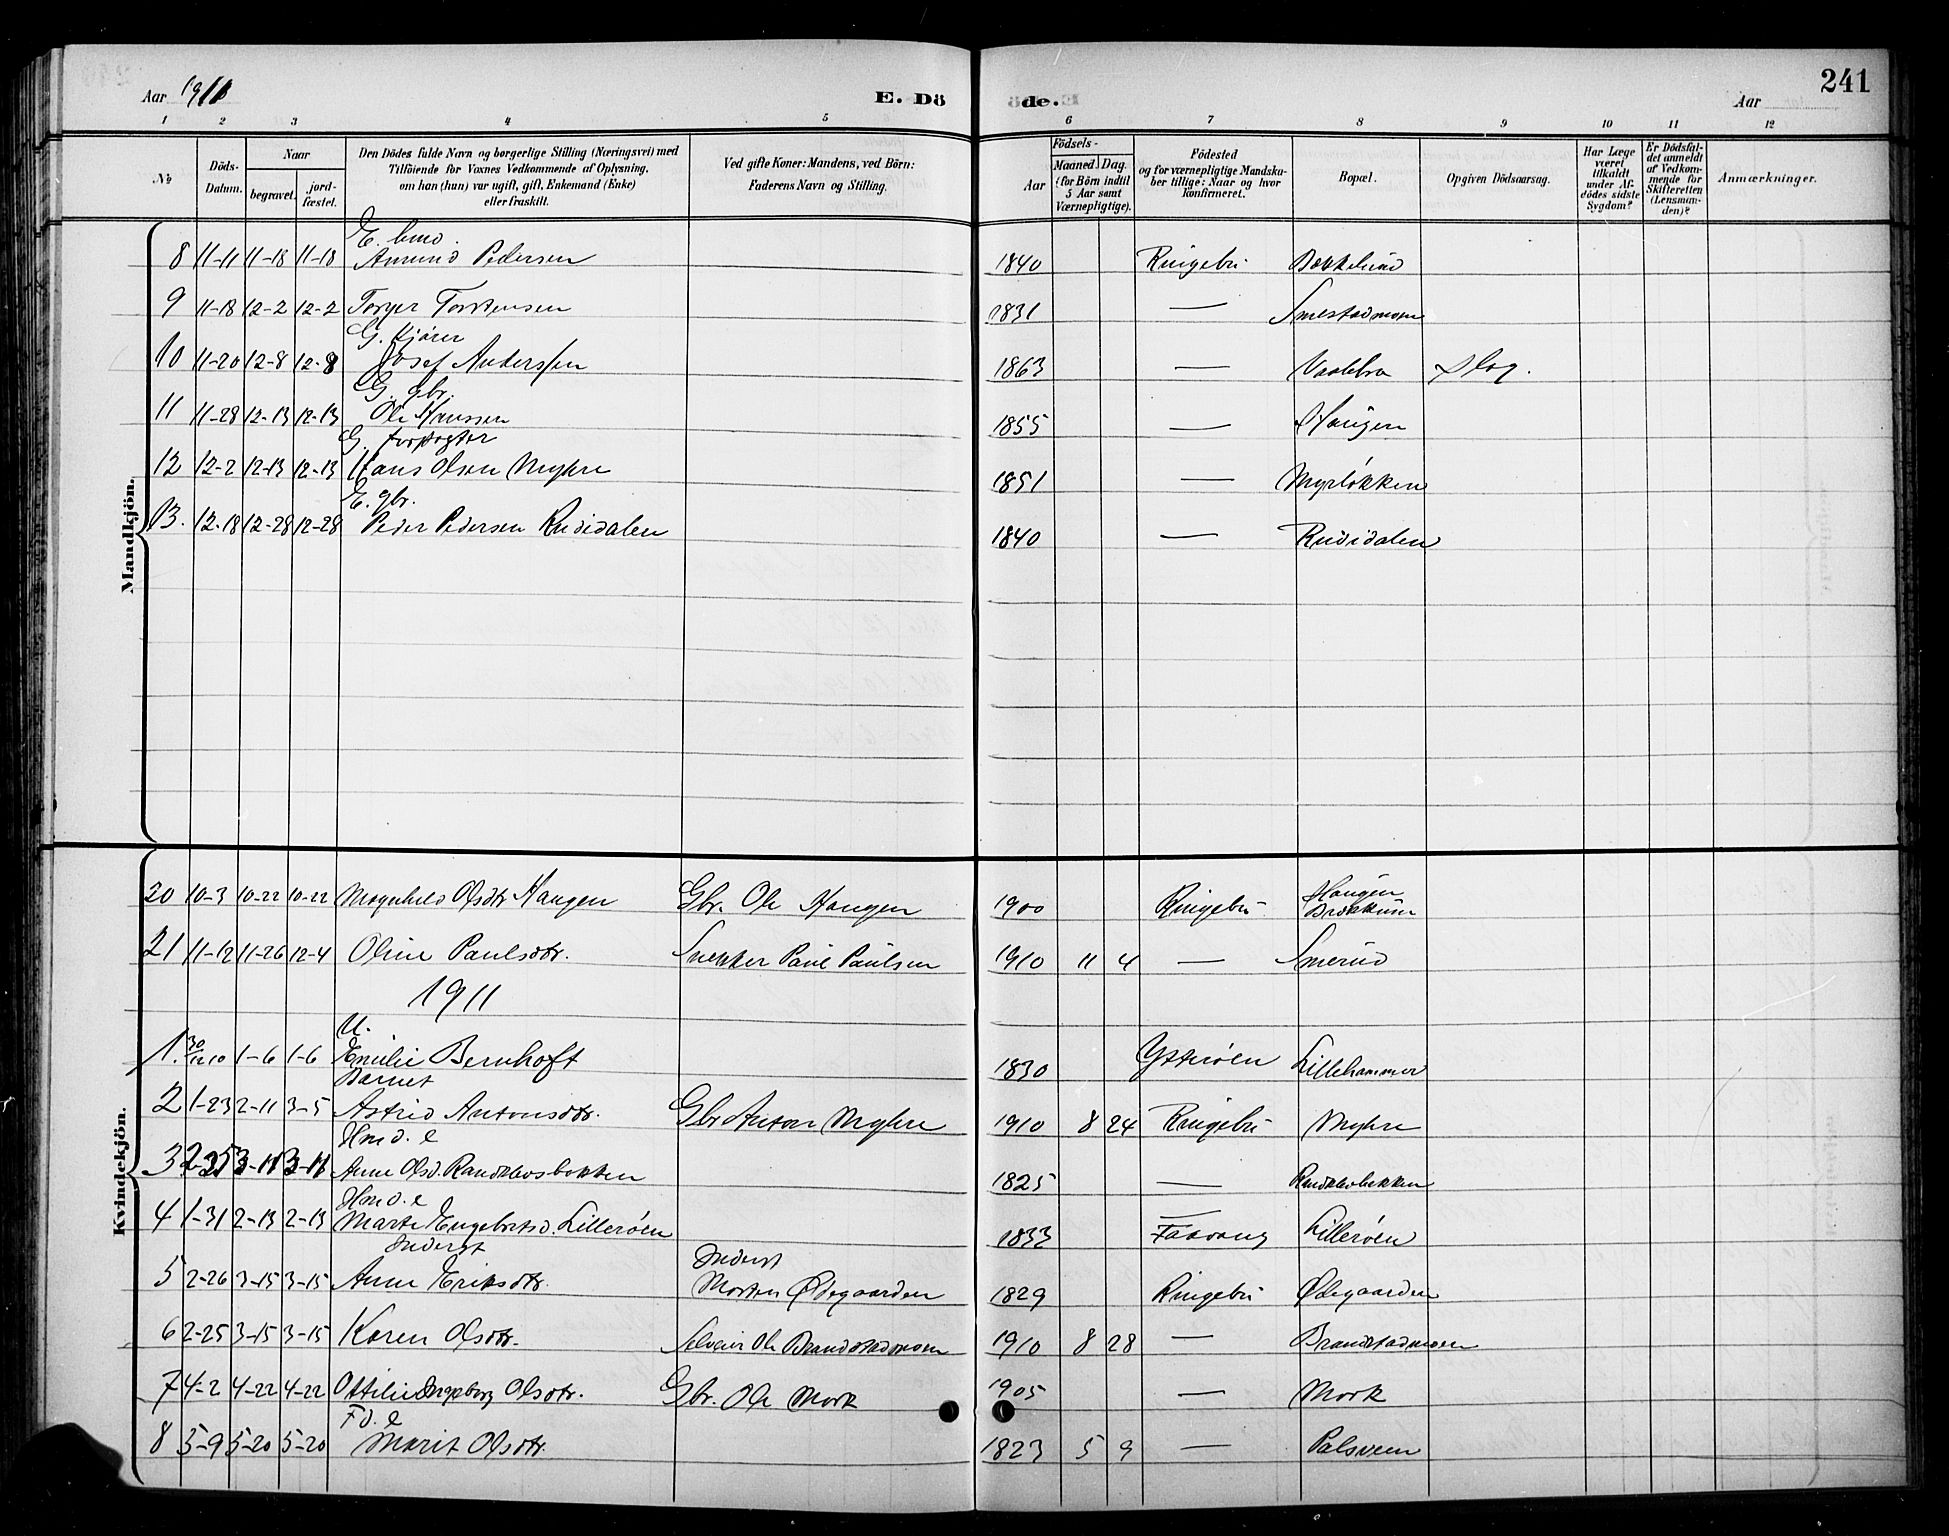 241
Aar 1911 E. Dö de. Aar
1 2 3 4 5 6 7 8 9 10 11 12
No Döds-Datum. Naar begravet. jord-fæstet. Den Dödes fulde Navn og borgerlige Stilling (Næringsvei) med Tilföiende for Voxnes Vedkommende af Oplysning, om han (hun) var ugift, gift, Enkemand (Enke) eller fraskilt. Ved gifte Koner: Mandens, ved Börn: Faderens Navn og Stilling. Födsels- Aar Maaned. Dag. (for Börn indtil 5 Aar samt Værnepligtige). Födested og for værnepligtige Mandskaber tillige: Naar og hvor konfirmeret. Bopæl. Opgiven Dödsaarsag. Har Læge været tilkaldt under Afdödes sidste Sygdom? Er Dödsfaldet anmeldt af Vedkommende for Skifteretten (Lensmanden)? Anmærkninger.
Mandkjön.
E.
8 11-11 11-18 11-18 Amund Pedersen 1840 Ringebu Bækkelund
9 11-18 12-2 12-2 Torger Torstensen 1831 — Smestadmoen
G.
10 11-20 12-8 12-8 Josef Anderssen 1863 — Vaalebro Slag.
G. gbr.
11 11-28 12-13 12-13 Ole Hanssen 1855 — Haugen
G. forpagter
12 12-2 12-13 12-13 Hans Olsen Myhre 1851 — Myrløkken
E. gbr.
13. 12-18 12-28 12-28 Peder Pedersen Rudidalen 1840 — Rudidalen
Kvindekjön.
20 10-3 10-22 10-22 Magnhild Olsdtr Haugen Gbr. Ole Haugen 1900 Ringebu Haugen Brækkum
21 11-12 11-26 12-4 Oline Paulsdtr. Snekker Paul Paulsen 1910 11 4 — Smerud
1911
U.
1. 30/12 10 1-6 1-6 Emilie Bernhoft 1830 Ytterøen Lillehammer
Barnet
2 1-23 2-11 3-5 Astrid Antonsdtr. Gbr Anton Myhre 1910 8 24 Ringebu Myhre
Hmd. e
3 2-25 3-11 3-11 Anne Olsd. Randklevsbakken 1825 — Randklevbakken
Hmd. e
4 1-31 2-13 2-13 Marte Engebretsd. Lillerøen 1833 Faavang Lillerøen
Inderst Inderst
5 2-26 3-15 3-15 Anne Eriksdtr. Morten Ødegaarden 1829 Ringebu Ødegaarden
6 2-25 3-15 3-15 Karen Olsdtr. Selveier Ole Brandstadmoen 1910 8 28 — Brandstadmoen
7 4-2 4-22 4-22 Ottilie Ingeborg Olsdtr. Gbr. Ole Mork 1905 — Mork
Fd. e
8 5-9 5-20 5-20 Marit Olsdtr. 1823 5 9 — Palsveen